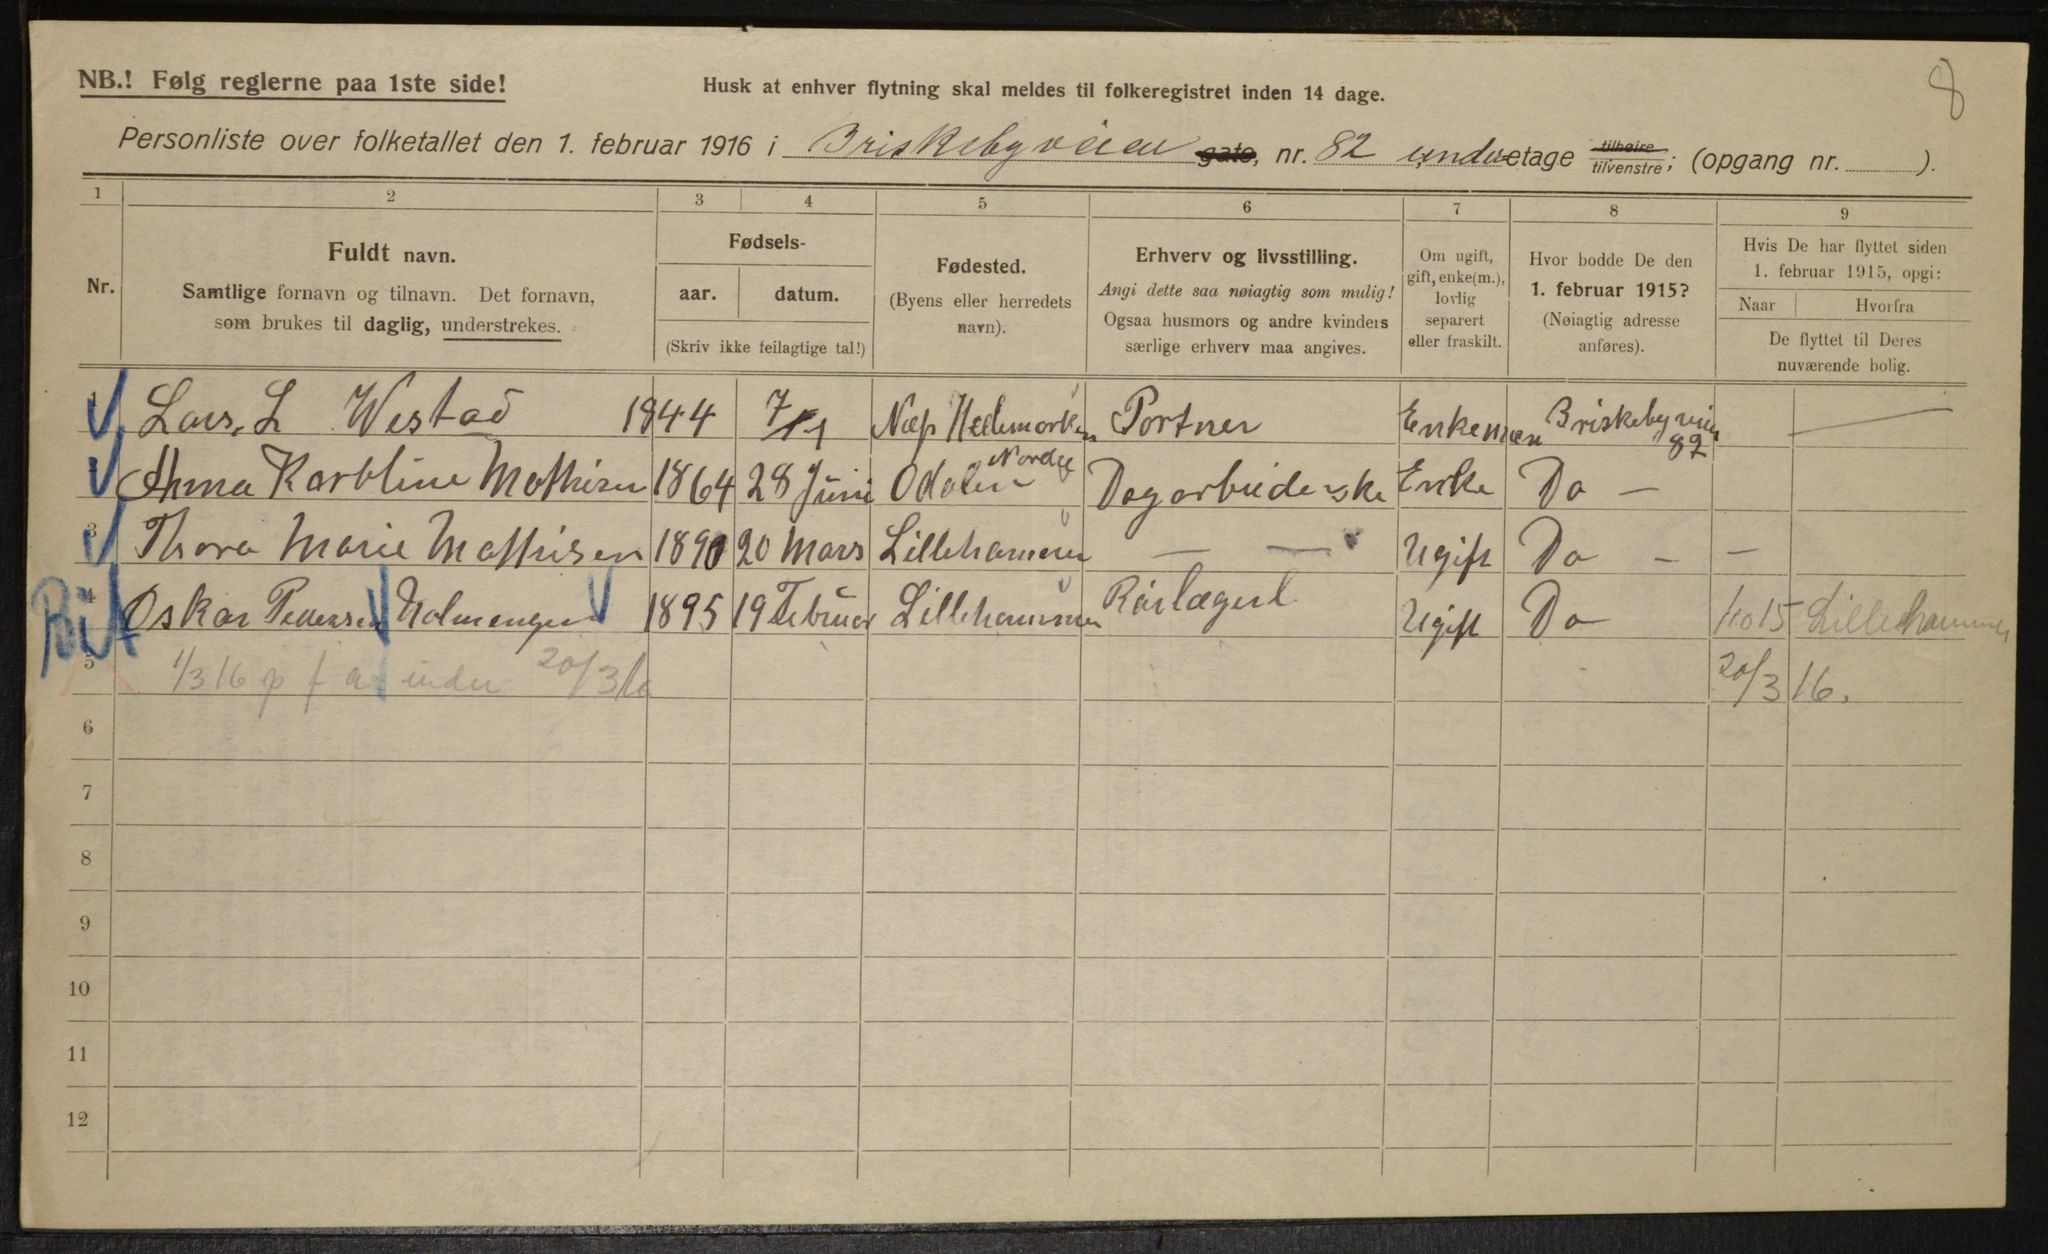 8
NB.! Følg reglerne paa 1ste side!
Husk at enhver flytning skal meldes til folkeregistret inden 14 dage.
Personliste over folketallet den 1. februar 1916 i Briskebyveien gate, nr. 82 under etage tilhøire/tilvenstre; (opgang nr. ).
1 2 3 4 5 6 7 8 9
Nr.
Fuldt navn.
Samtlige fornavn og tilnavn. Det fornavn,
som brukes til daglig, understrekes.
Fødsels-
aar. datum.
(Skriv ikke feilagtige tal!)
Fødested.
(Byens eller herredets
navn).
Erhverv og livsstilling.
Angi dette saa nøiagtig som mulig!
Ogsaa husmors og andre kvinders
særlige erhverv maa angives.
Om ugift,
gift, enke(m.),
lovlig
separert
eller fraskilt.
Hvor bodde De den
1. februar 1915?
(Nøiagtig adresse
anføres).
Hvis De har flyttet siden
1. februar 1915, opgi:
Naar Hvorfra
De flyttet til Deres
nuværende bolig.
1 Lars, L Westad 1844 7/1 Næs Hedemarken Portner Enkeman Briskebyveien 82 —
Anna Karoline Mathisen 1864 28 Juni Odalen Nordre Dagarbeiderske Enke Do —
3 Thora Marie Mathisen 1890 20 Mars Lillehammer — — Ugift Do — —
4 Oskar Pedersen Holmengen 1895 19 Februar Lillehammer Rørlægerl Ugift Do 15 Lillehammer
5 1/3 16 p f a 20/3 16 20/3 16.
6
7
8
9
10
11
12